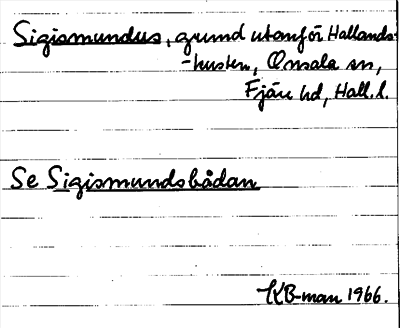 Sigismundus, grund utanför Hallands-
-kusten, Onsala sn,
Fjäre hd, Hall. l.
Se Sigismundsbådan
KB-man 1966.